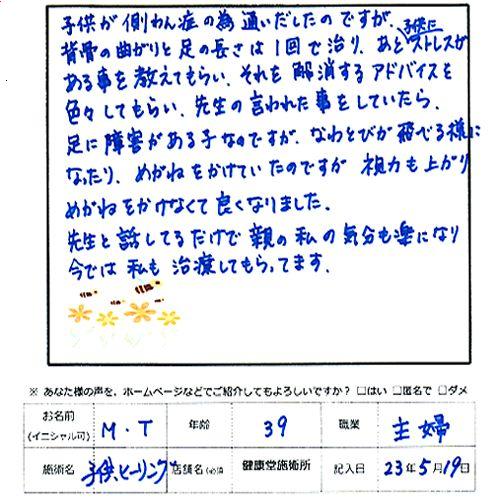 子供が側わん症の為通いだしたのですが、
背骨の曲がりと足の長さは1回で治り、あと子供にストレスが
ある事を教えてもらい、それを解消するアドバイスを
色々してもらい、先生の言われた事をしていたら、
足に障害がある子なのですが、なわとびが飛べる様に
なったり、めがねをかけていたのですが視力も上がり
めがねをかけなくて良くなりました。
先生と話してるだけで親の私の気分も楽になり
今では私も治療してもらってます。
※ あなた様の声を、ホームページなどでご紹介してもよろしいですか? □はい □匿名で □ダメ
お名前(イニシャル可) M・T 年齢 39 職業 主婦
施術名 子供、ヒーリング 店舗名(必須 健康堂施術所 記入日 23年5月19日